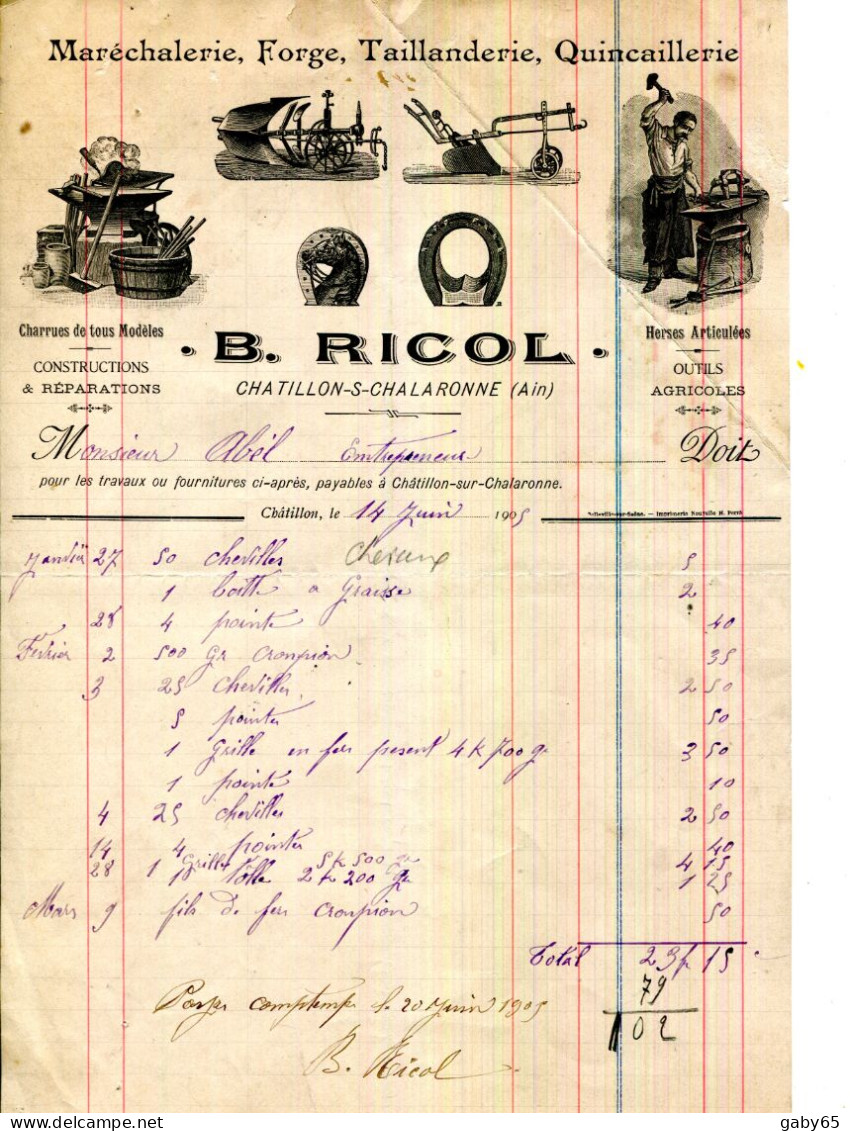 Maréchalerie, Forge, Taillanderie, Quincaillerie
Charrues de tous Modèles
CONSTRUCTIONS
& RÉPARATIONS
Herses Articulées
OUTILS
AGRICOLES
· B. RICOL ·
CHATILLON-S-CHALARONNE (Ain)
Monsieur Abél Entrepreneur Doit
pour les travaux ou fournitures ci-après, payables à Châtillon-sur-Chalaronne.
Belleville-sur-Saône. — Imprimerie Nouvelle
Châtillon, le 14 Juin 1905
Janvier 27 50 chevilles 5
1 boitte a Graisse 2
28 4 pointe 40
Fevrier 2 500 Gr cronpion 35
3 25 chevilles 2 50
5 pointes 50
1 Grille en fer pesent 4 K 700 gr 3 50
1 pointe 10
4 25 chevilles 2 50
14 4 pointes 40
28 1 Grille 5 K 500 gr 4 15
1 tôlle 2 K 200 gr 1 25
Mars 9 fils de fer cronpion 50
Total 23f 15
79
102
le 20 Juin 1905
B. Ricol
gaby65